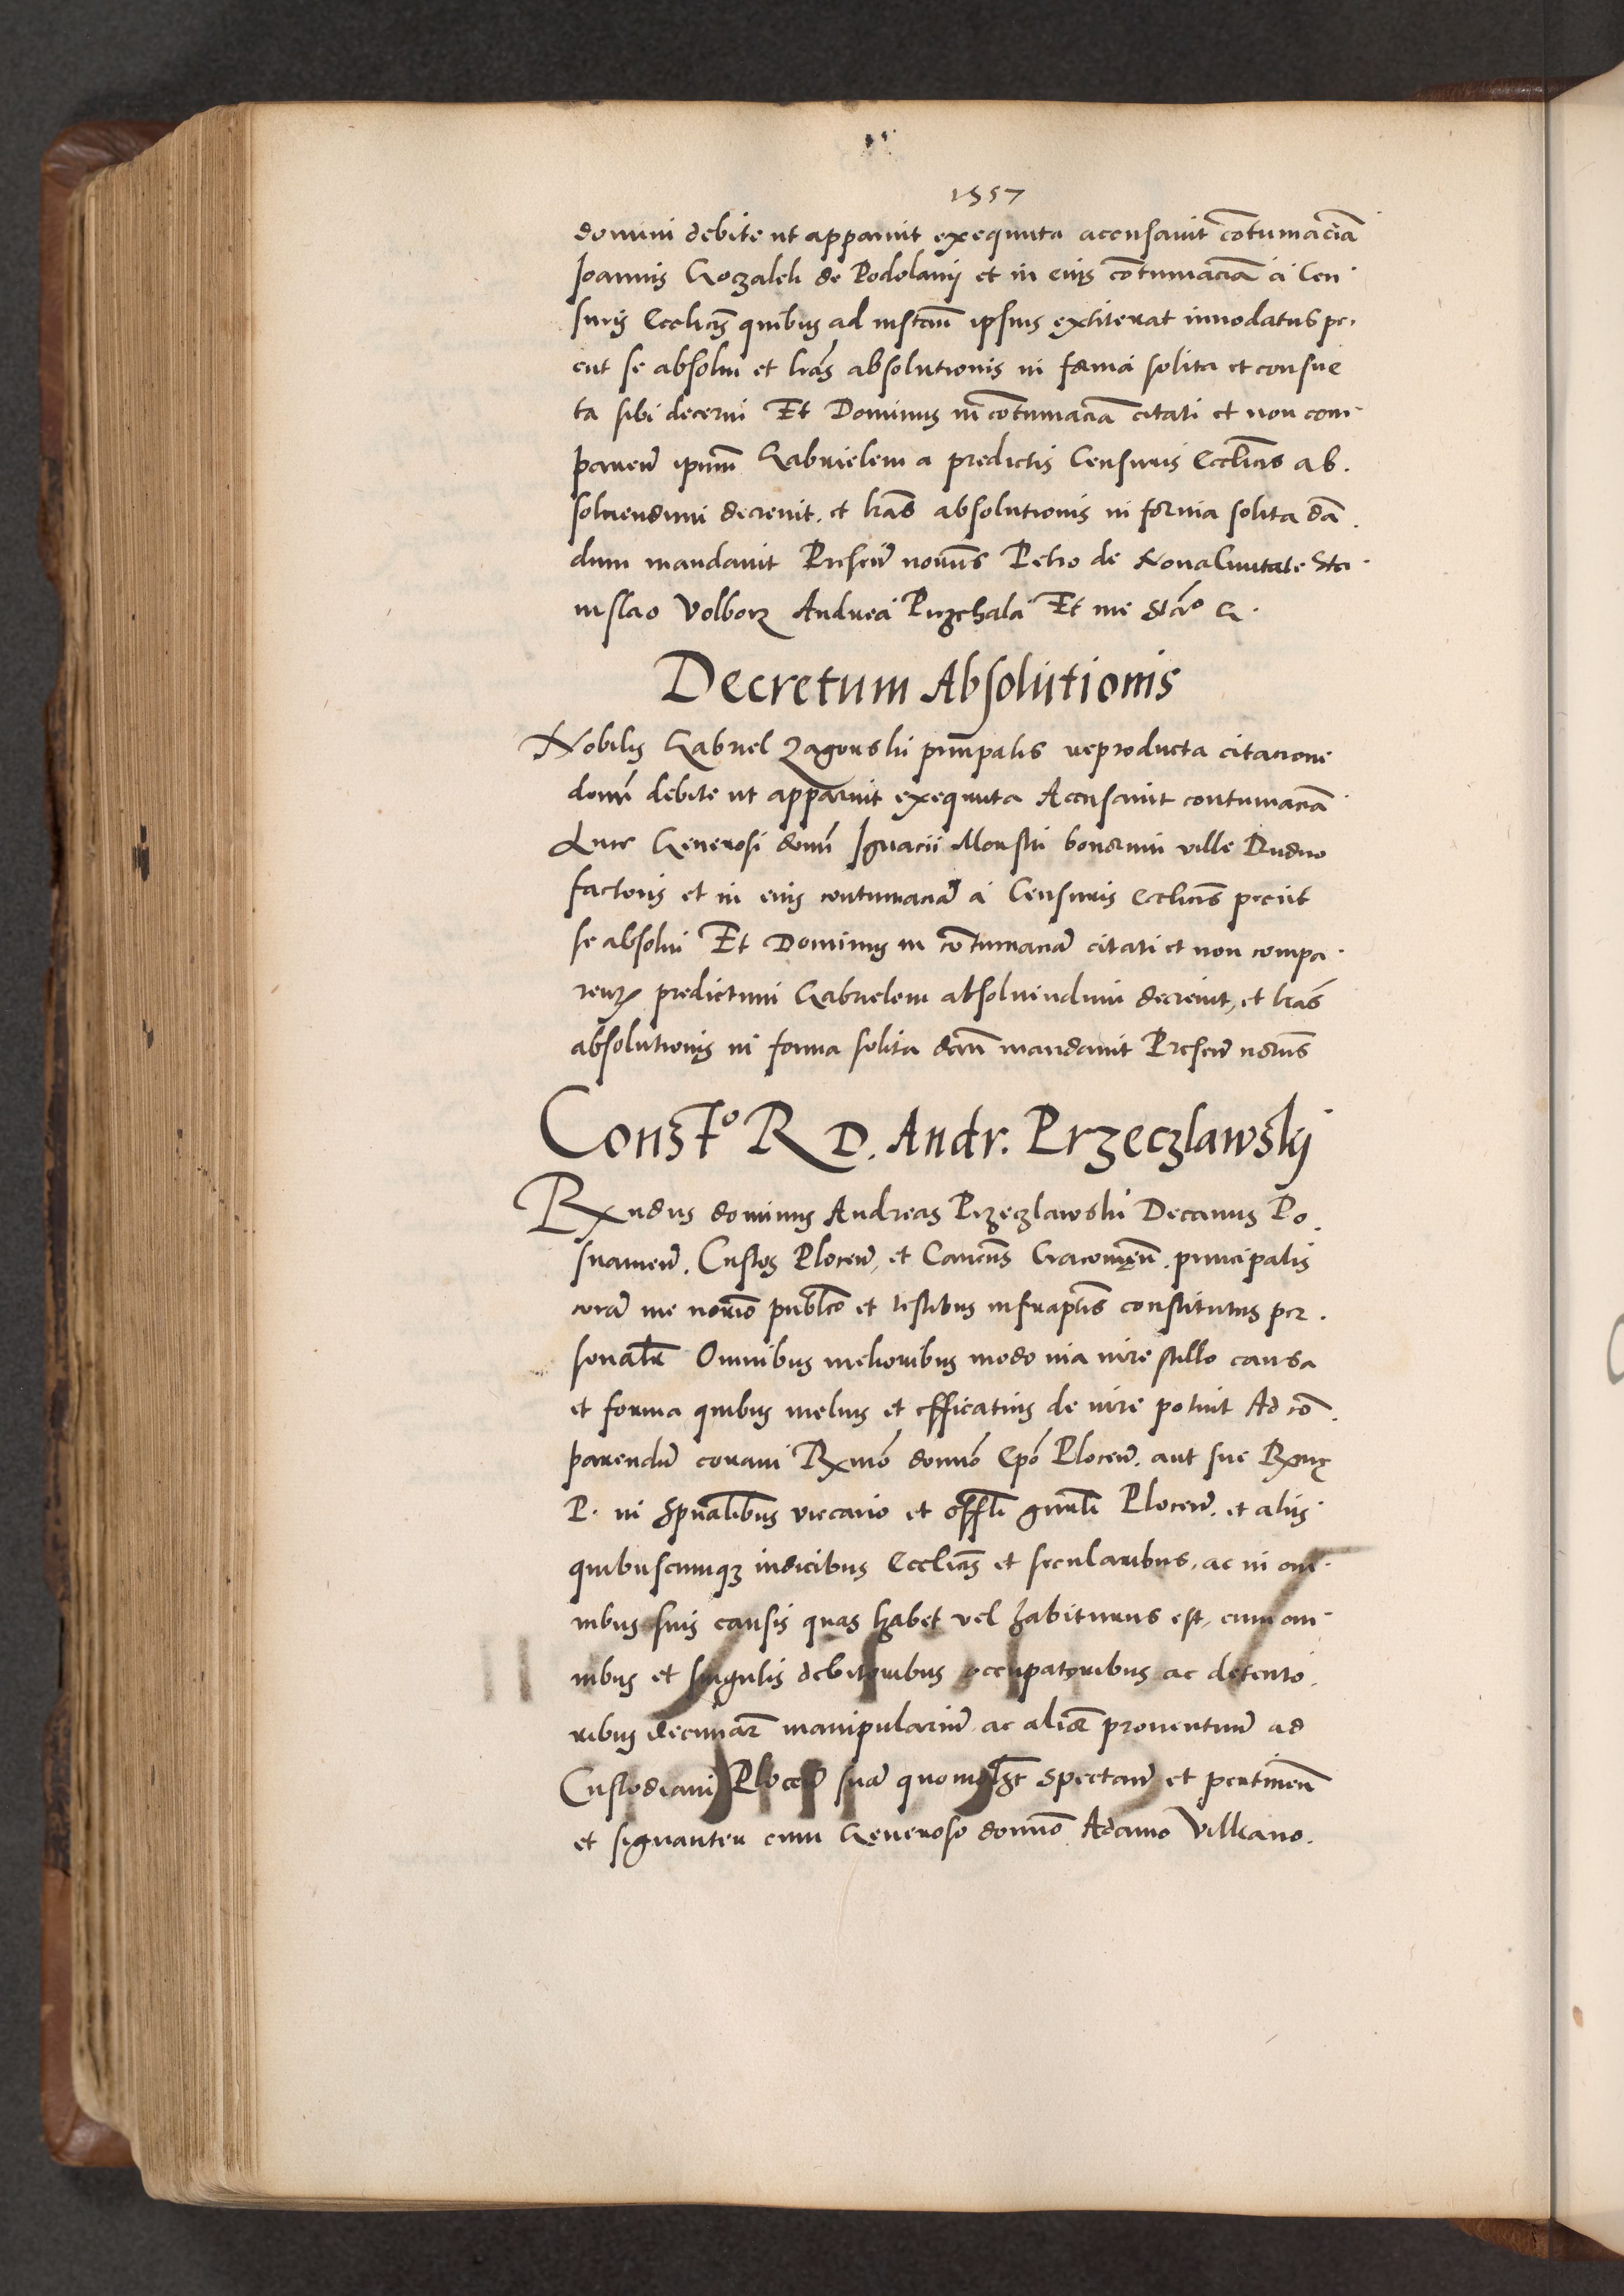 1557
domini debite ut apparuit exequuta accusavit cõtumaciã
Joannis Kozalek de Podolanij et in eius cõtumaciã a Cen
suris Ecclicis quibus ad instan̄ ipsius extiterat innodatus pe,
ciit se absolui et lras absolutionis in forma solita et consue
ta sibi decerni Et Dominus in cõtumaciã citati et non com
paren̄ ipsum Gabrielem a predictis Censuris Ecclicis ab.
soluendum decreuit. et lras absolutionis in forma solita dã
dum mandauit Presen̄ nouus Petro de Noua Ciuitate Sta
nislao Volborz Andrea Puzchala Et me
Decretum Absolutionis
Nobilis Gabriel Zagorski principalis reproducta citacione
domī debite ut apparuit exequuta Accusauit contumaciã
Luce Generosi domī Ignacii bonorum ville Dudno
factoris et in eius contumaciã a Censuris ecclicis peciit
se absolui Et Dominus in cõtumaciã citati et non compa
ren̄ predictum Gabrielem absoluendum decreuit, et lras
absolutionis in forma solita dan̄ mandauit Presen̄
Const.º R D. Andr. Przeczlawskj
Rndus dominus Andreas Przeczlawski Decanus Po
snanien̄. Custos Plocen̄, et Canctus Cracouien̄. principalis
corã me notrio publco et testibus infraptis constitutus per
sonatr Omnibus melioribus modo via iure stillo causa
et forma quibus melius et efficatius de iure potuit Ad cõ
parendũ coram Rxmo domno Epo Plocen̄. aut sue
P. in Spualibus vicario et offli gnrali Plocen̄. et aliis
quibuscumqz iudicibus Ecclicis et secularibus, ac in om
nibus suis causis quas habet vel habiturus est, cum om
nibus et singulis debitoribus occupatoribus ac detento
ribus decimarz manipulariũ ac aliorz prouentuũ ad
Custodiam Plocen̄ suã quomolzt spectan̄ et pertinen̄
et signanter cum Generoso domno Adamo Vilkano.